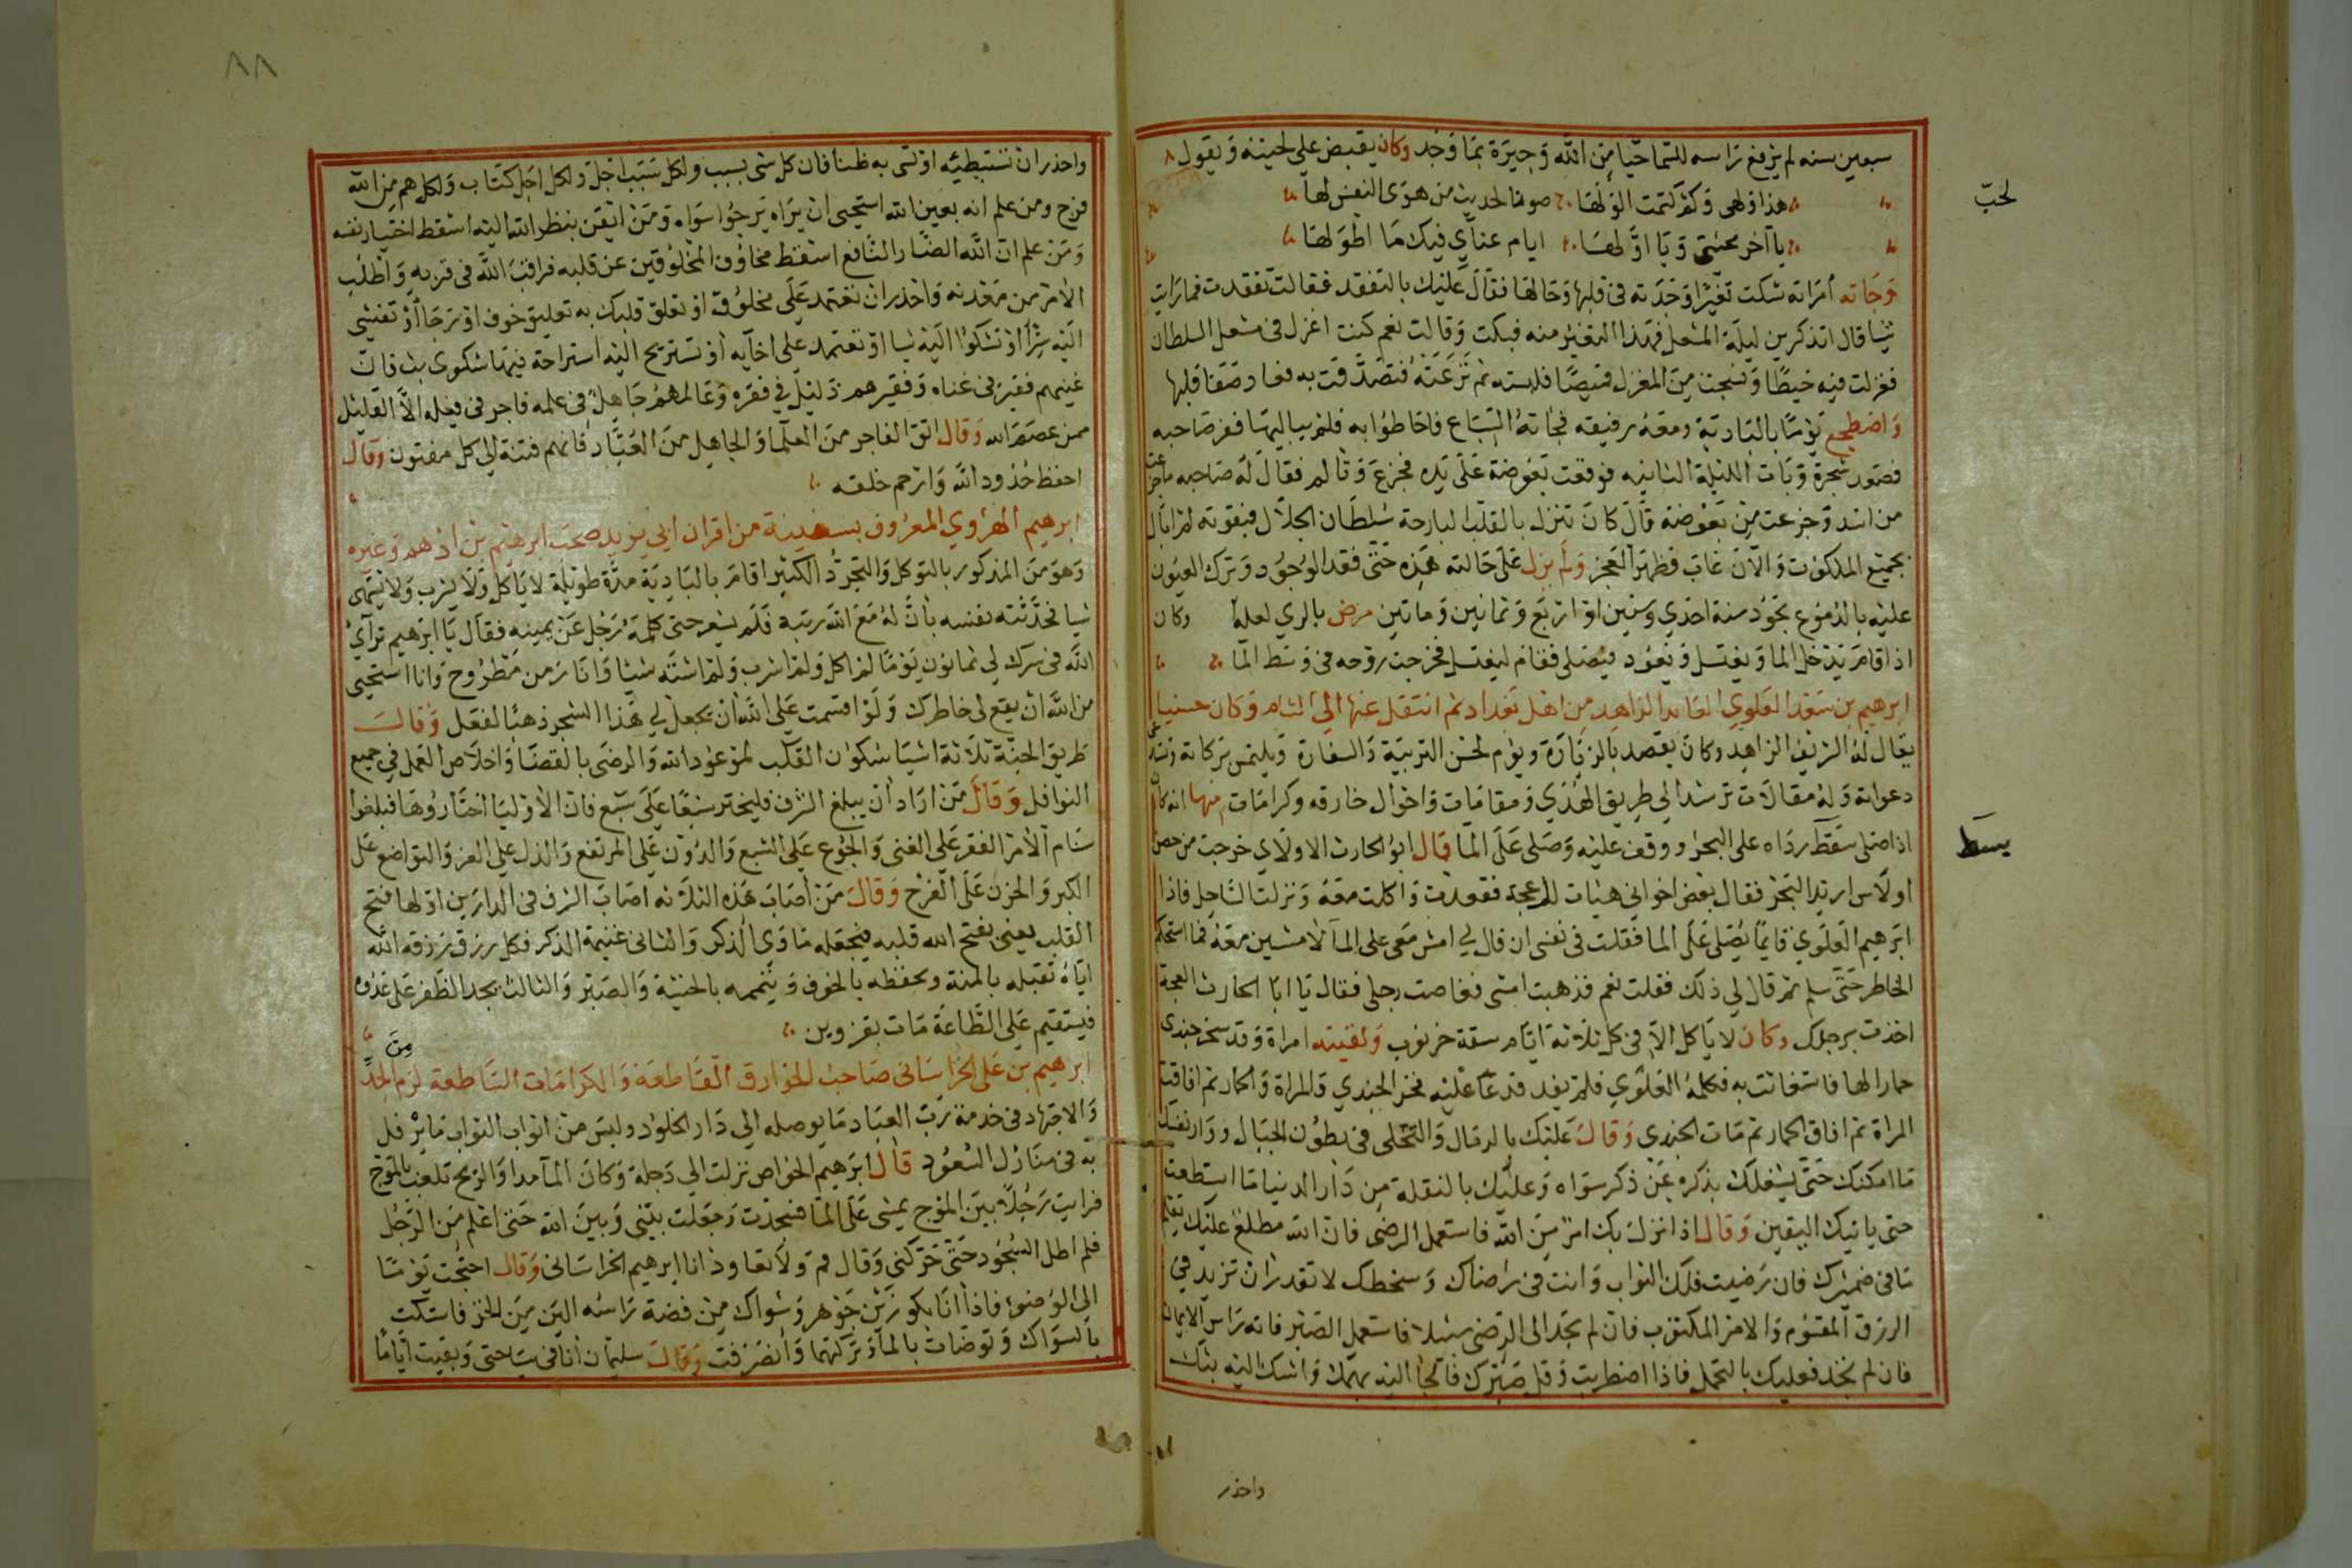 سبعين سنه لم يرفع راسه للسما حيا من الله وحيرة بما وجد وكان يقبض على لحيته ويقول
هذا ولهى وكم كتمت الولها صونا لحديث من هوى النفس لها
يا آخر محنتي ويا اولها ايام عناي فيك ما اطولها
لحب
وجاته امراته شكت تغيرا وجدته في قلبها وحالها فقال عليك بالتفقد فقالت تفقدت فما رايت
شيا قال اتذكرين ليلة المشعل فهذا التغير منه فبكت وقالت نعم كنت اغزل في مشعل السلطان
فغزلت فيه خيطا ونسجت من المغزل قميصا فلبسته ثم نزعته فتصدقت به فعاد صفا قلبها
واضطجع يوما بالبادية ومعه رفيقه فجاته السباع فاحاطوا به فلم يبالها ففر صاحبه
فصعد شجرة وبات الليلة الثانيه فوقعت بعوضة على يده فجزع وتالم فقال له صاحبه ما جزعت
من اسد وجزعت من بعوضة قال كان تنزل بالقلب البارحة سلطان الجلال فبقوته لم ابال
بجميع الملكوت والآن غاب فظهر العجز ولم يزل على حالته هذه حتى فقد الوجود وترك العيون
عليه بالدموع تجود سنة احدي وستين او اربع وثمانين وماتين مرض بالري لعلة وكان
اذا قام يدخل الما ويغتسل ويعود فيصلى فقام ليغتسل فخرجت روحه في وسط الما
ابرهيم بن سعد العلوي العابد الزاهد من اهل بغداد ثم انتقل عنها الى الشام وكان حسنيا
يقال له الشريف الزاهد وكان يقصد بالزيارة ويؤم لحسن التربية والسفارة ويلتمس بركاته
دعواته وله مقالات ترشد الى طريق الهدي ومقامات واحوال خارقه وكرامات منها انه كان
اذا صلى بسط رداه على البحر ووقف عليه وصلى على الما قال ابو الحارث الاولاسي خرجت من حصن
يبسط
اولاس اريد البحر فقال بعض اخواني هيات لك عجة فقعدت واكلت معه ونزلت الساحل فاذا
ابرهيم العلوي قايما يصلى على الما فقلت في نفسي ان قال لي امش معي على المآ لامشين معه فما استحكم
الخاطر حتى سلم ثم قال لي ذلك فقلت نعم فذهبت امشى فغاصت رجلى فقال يا ابا الحارث العجة
اخذت برجلك وكان لا ياكل الا في كل ثلاثة ايام سفة خرنوب ولقيته امراة وقد سخر جندي
حمارا لها فاستغاثت به فكلمه العلوي فلم يفد فدعا عليه فخر الجندي والمراة والحمار ثم افاقت
المراة ثم افاق الحمار ثم مات الجندي وقال عليك بالرمال والتخلى في بطون الجبال ووار نفسك
ما امكنك حتى يشغلك بذكره عن ذكر سواه وعليك بالنقلة من دار الدنيا ما استطعت
حتى ياتيك اليقين وقال اذا نزل بك امر من الله فاستعمل الرضى فان الله مطلع عليك يعلم
ما في ضميرك فان رضيت فلك الثواب وانت في رضاك وسخطك لا تقدر ان تزيد في
الرزق المقسوم والامر المكتوب فان لم تجد الى الرضى سبيلا فاستعمل الصبر فانه راس الايمان
فان لم تجد فعليك بالتحمل فاذا اضطربت وقل صبرك فالجا اليه بهمك واشك اليه بثك
واحذر
٨٨
واحذر ان تستبطيه او تسى به ظنا فان كل شي بسبب ولكل سبب اجل ولكل اجل كتاب ولكل هم من الله
فرج ومن علم انه بعين الله استحيى ان يراه يرجوا سواه ومن ايقن بنظر الله اليه اسقط اختيار نفسه
ومن علم ان الله الضار النافع اسقط مخاوف المخلوقين عن قلبه فراقب الله في قربه واطلب
الامر من معدنه واحذر ان تعتمد على مخلوق او تعلق قلبك به تعليق خوف او رجا او تفشي
اليه سرا او تشكوا اليه شيا او تعتمد على اخآيه او تستريح اليه استراحة فيها شكوى بث فان
غنيهم فقير في غناه وفقيرهم ذليل في فقره وعالمهم جاهل في علمه فاجر في فعله الا القليل
ممن عصم الله وقال اتق الفاجر من العلما والجاهل من العباد فانهم فتنة الي كل مفتون وقال
احفظ حدود الله وارحم خلقه
ابرهيم الهروي المعروف بستنبة من اقران ابي يزيد صحب ابرهيم بن ادهم وغيره
وهو من المذكور بالتوكل والتجرد الكثير اقام بالبادية مدة طويلة لا ياكل ولا يشرب ولا يشتهى
شيا فحدثته نفسه بان له مع الله رتبة فلم يشعر حتى كلمه رجل عن يمينه فقال يا ابرهيم ترآي
الله في سرك لي ثمانون يوما لم اكل ولم اشرب ولم اشته شيا وانا زمن مطروح وانا استحيى
من الله ان يقع لي خاطرك ولو اقسمت على الله ان يجعل لي هذا الشجر ذهبا لفعل وقال
طريق الجنة ثلاثة اشيا سكون القلب لموعود الله والرضى بالقضا واخلاص العمل في جميع
النوافل وقال من اراد ان يبلغ الشرف فليختر سبعا على سبع فان الاوليا اختاروها فبلغوا
سنام الامر الفقر على الغنى والجوع على الشبع والدون على المرتفع والذل على العز والتواضع على
الكبر والحزن على الفرح وقال من اصاب هذه الثلاثه اصاب الشرف في الدارين اولها فتح
القلب يعنى يفتح الله قلبه فيجعله ماوى الذكر والثانى غنيمة الذكر فكل رزق رزقه الله
اياه تقبله بالمنة وبحفظه بالخوف ويتممه بالخشية والصبر والثالث يجد الظفر على عدوه
فيستقيم على الطاعة مات بقزوين
ابرهيم بن على الخراسانى صاحب الخوارق القاطعة والكرامات الساطعة لزم من الجد
والاجتهاد في خدمة رب العباد ما يوصله الى دار الخلود ولبس من اثواب الثواب ما يرفل
به في منازل السعود قال ابرهيم الخواص نزلت الي دجلة وكان المآ مدا والريح تلعب بالموج
فرايت رجلا بين الموج يمشى على الما فسجدت وجعلت بيني وبين الله حتى اعلم من الرجل
فلم اطل السجود حتى حركني وقال قم ولا تعاود انا ابرهيم الخراسانى وقال احتجت يوما
الى الوضوء فاذا انا بكوز من جوهر وسواك من فضة راسه الين من الخز فاستكت
بالسواك وتوضات بالمآ وتركتهما وانصرفت وقال سليمان انا في سياحتى وبقيت اياما